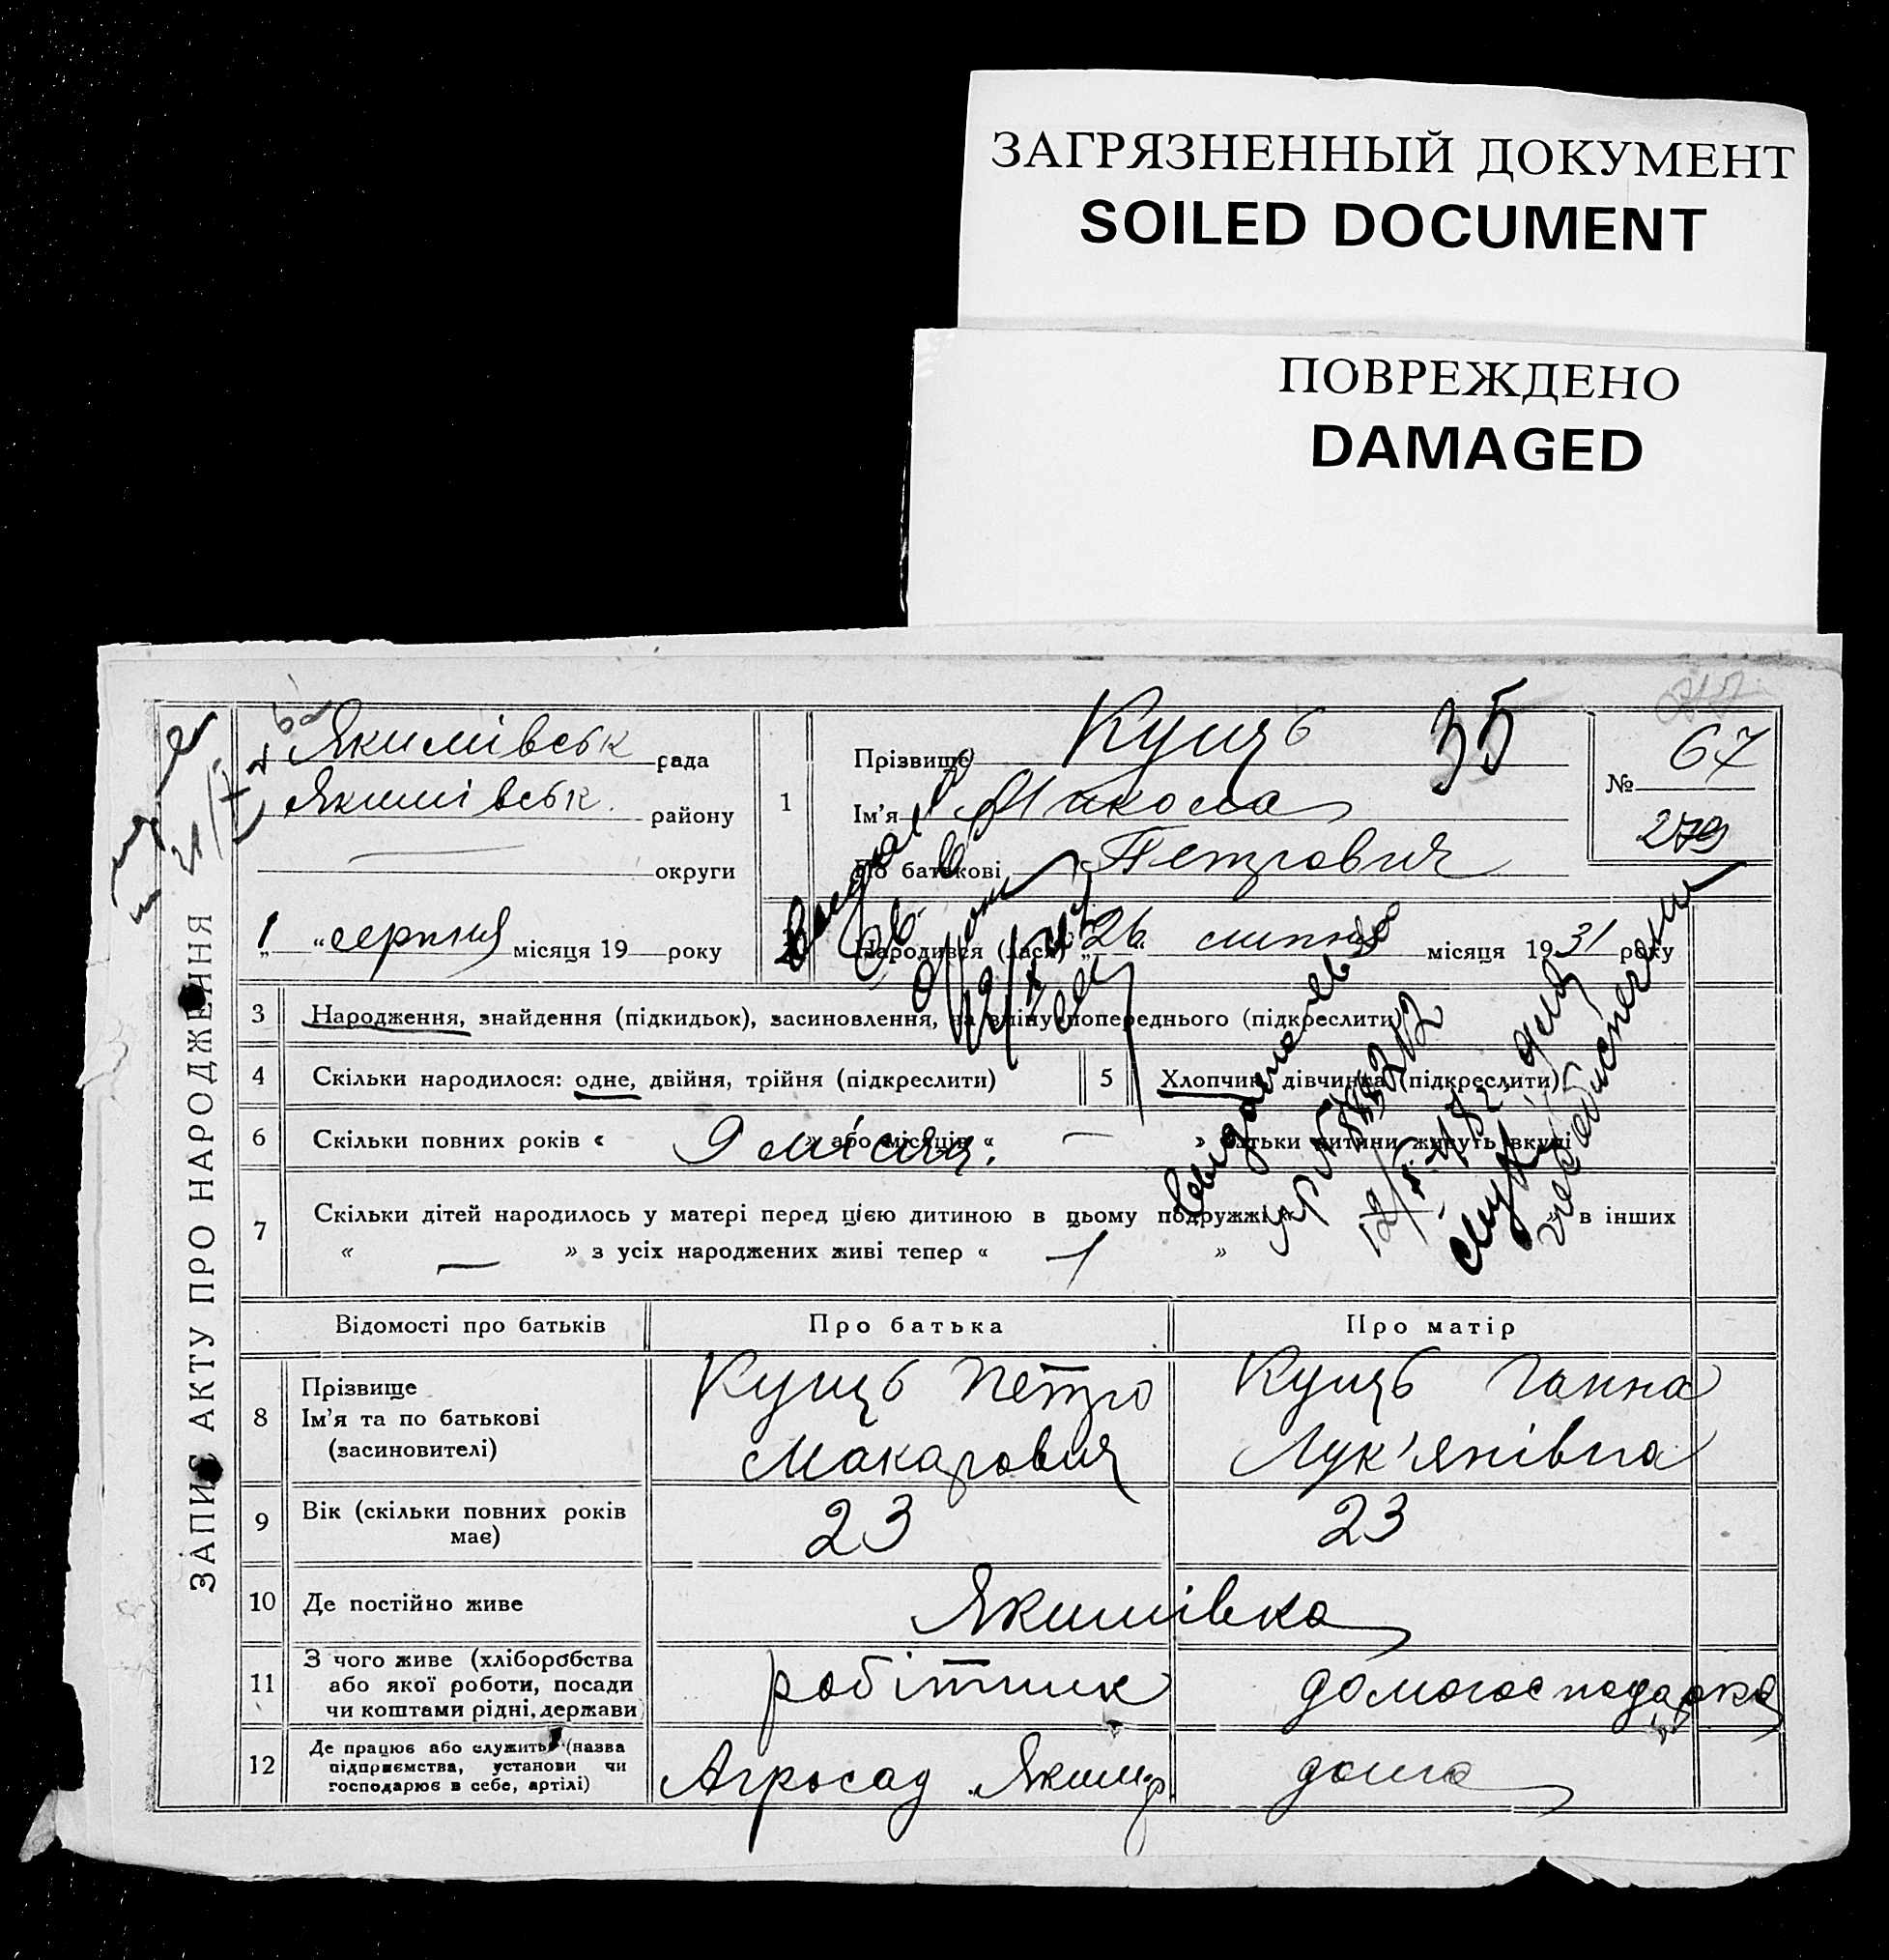 ЗАГРЯЗНЕННЫЙ ДОКУМЕНТ
SOILED DOCUMENT
ПОВРЕЖДЕНО
DAMAGED
ЗАПИС АКТУ ПРО НАРОДЖЕННЯ
Якимівськ рада
Якимівськ. району
округи
„1“ серпня місяця 19 року
1
Прізвище Кущь 35
Ім'я Микола
По батькові Петрович
№ 67
279
Народився (лася) „26“ липня місяця 1931 року
3 Народження, знайдення (підкидьок), засиновлення, на зміну попереднього (підкреслити)
4 Скільки народилося: одне, двійня, трійня (підкреслити) 5 Хлопчик, дівчинка (підкреслити)
6 Скільки повних років « » або місяців « — » батьки дитини живуть вкупі
7 Скільки дітей народилось у матері перед цією дитиною в цьому подружжі « » в інших
« — » з усіх народжених живі тепер « 1 »
Відомості про батьків Про батька Про матір
8 Прізвище Ім'я та по батькові (засновителі)
Кущь Петро Кущь Ганна
Макарович Лук'янівна
9 Вік (скільки повних років має) 23 23
10 Де постійно живе Якимівка
11 З чого живе (хліборобства або якої роботи, посади чи коштами рідні, держави)
робітник домогосподарка
12 Де працює або служить (назва підприємства, установи чи господарює в себе, артілі)
Агросад дома